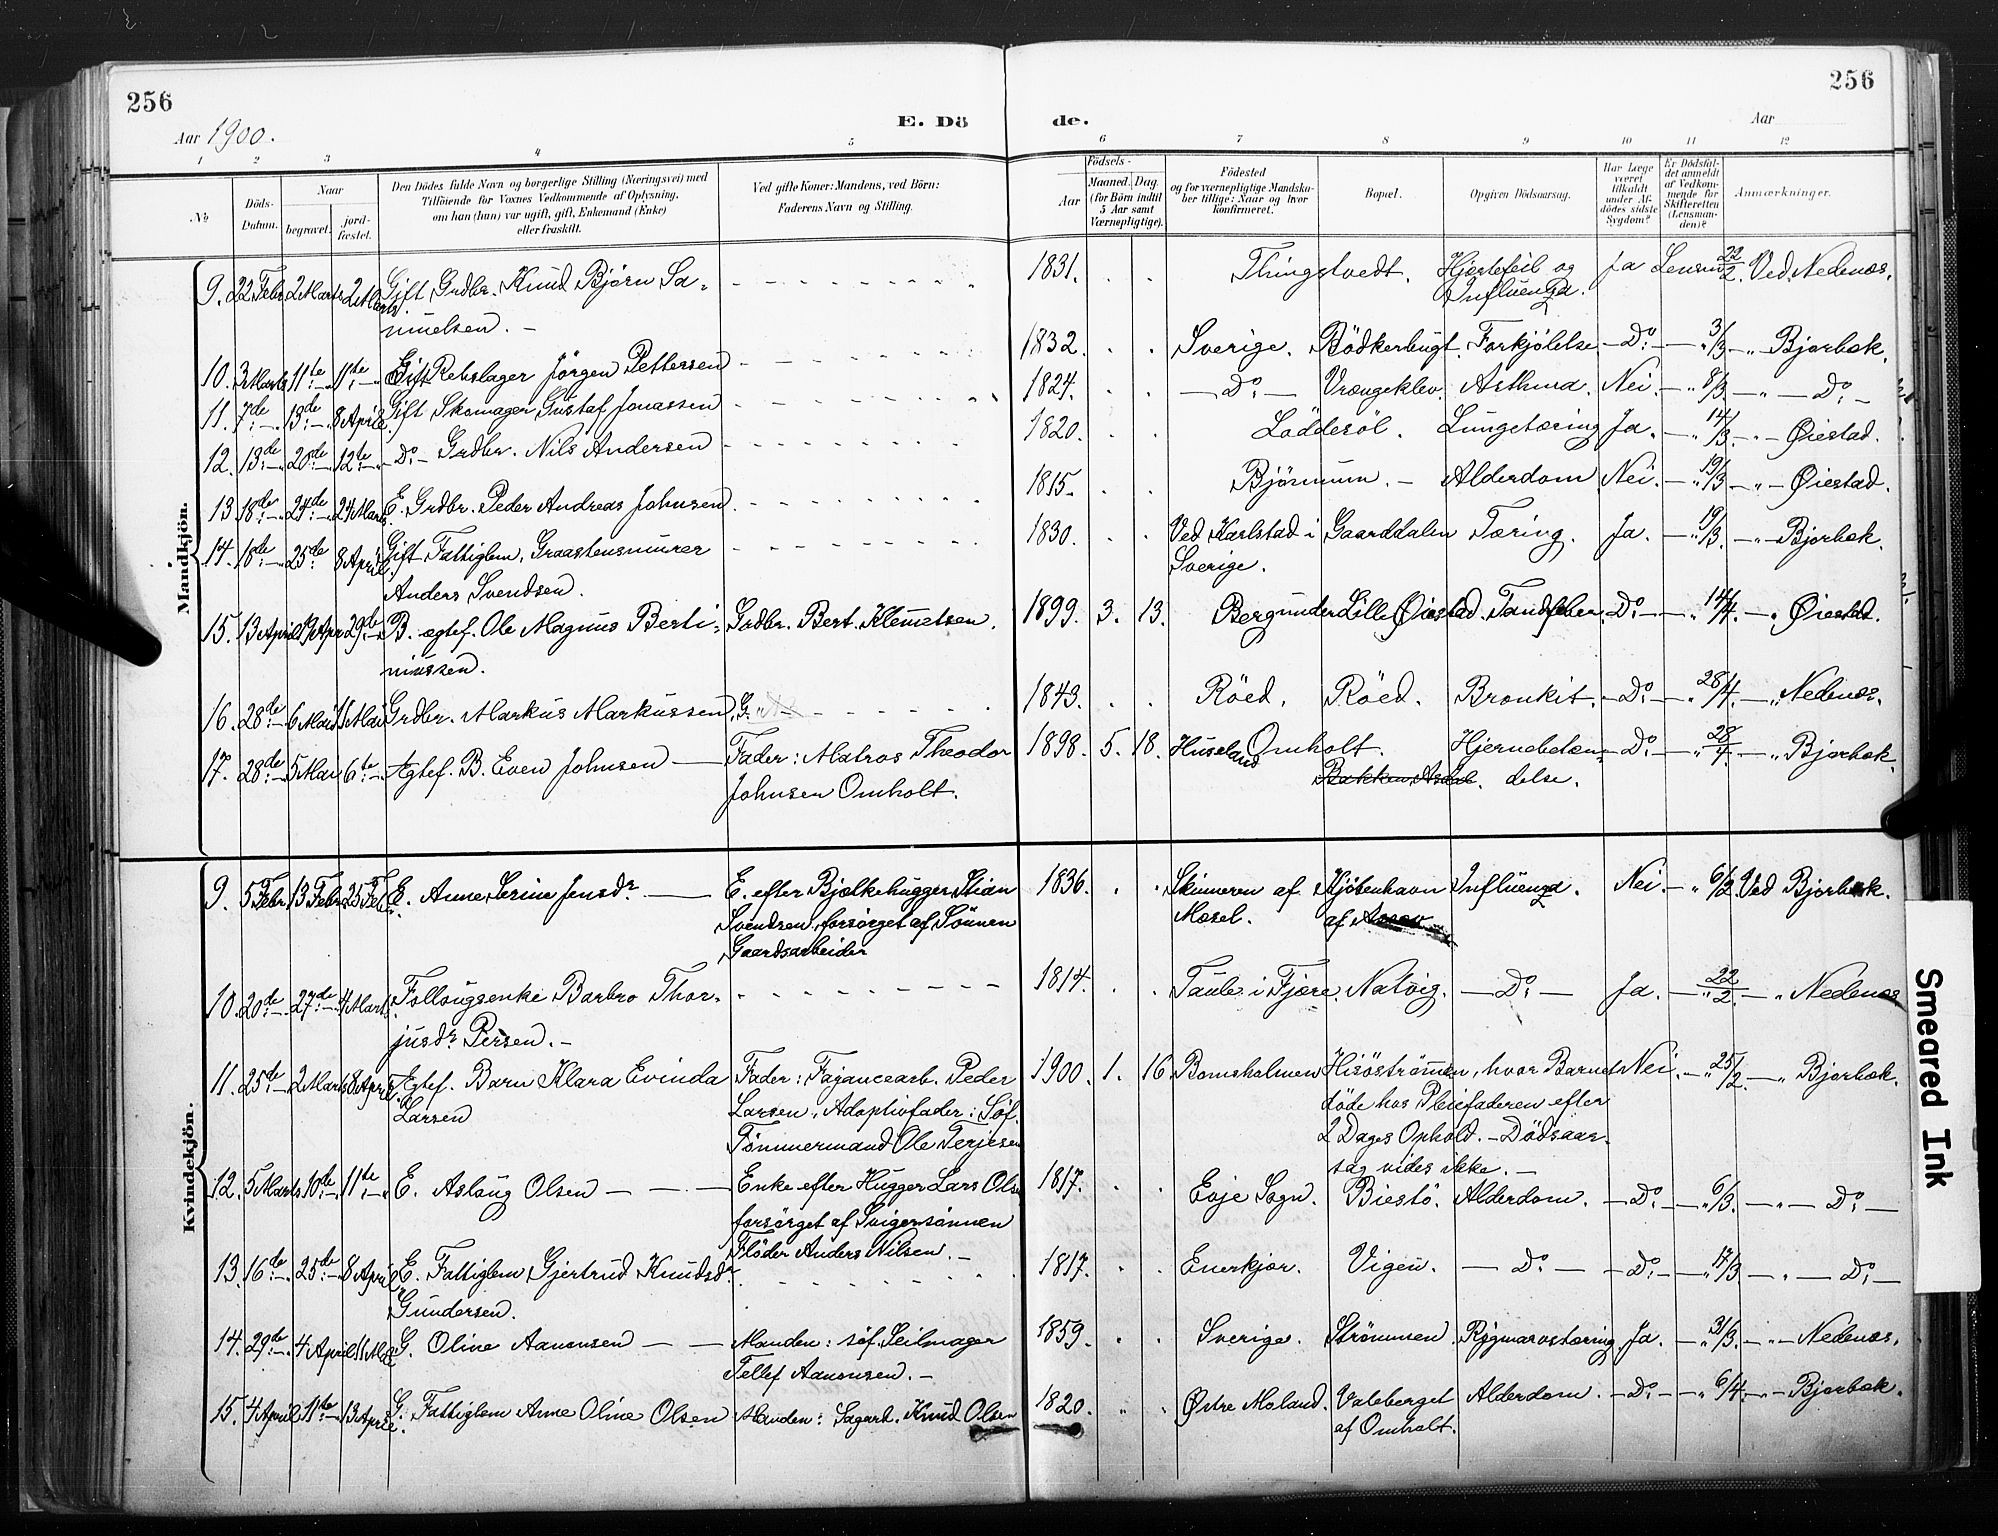 256
256
Aar 1900.
E. Dö
de.
Aar
1 2 3 4 5 6 7 8 9 10 11 12
No
Döds-Datum.
Naar
begravet.
jord-fæstet.
Den Dödes fulde Navn og borgerlige Stilling (Næringsvei) med
Tilföiende for Voxnes Vedkommende af Oplysning,
om han (hun) var ugift, gift, Enkemand (Enke)
eller fraskilt.
Ved gifte Koner: Mandens, ved Börn:
Faderens Navn og Stilling.
Födsels-
Aar
Maaned. Dag.
(for Börn indtil
5 Aar samt
Værnepligtige).
Födested
og for værnepligtige Mandska-
ber tillige: Naar og hvor
konfirmeret.
Bopæl.
Opgiven Dödsaarsag.
Har Læge
været
tilkaldt
under Af-
dödes sidste
Sygdom?
Er Dödsfal-
det anmeldt
af Vedkom-
mende for
Skifteretten
(Lensman-
den)?
Anmærkninger.
Mandkjön.
9. 22 Febr 2 Marts 2 Marts Gift Grdbr. Knud Björn Sa- 1831. Thingstvedt. Hjertefeil og Ja Lensm 22/2. Ved Nedenæs.
muelsen. – Influenza.
10. 3 Marts 11te 11te Gift Rebslager Jörgen Pettersen 1832. Sverige. Bödkerbugt. Forkjölelse – Do – " 3/3 – " Bjorbæk.
11. 7de 13de 8 April. Gift Skomager Gustaf Jonassen 1824. – Do – Vrængeklev. Asthma. Nei. – " 8/3 – " – Do –
12. 13de 20de 12te – Do – Grdbr. Nils Andersen 1820. Löddesöl. Lungetæring Ja. – " 14/3. – " – Øiestad.
13 18de 24de 24 Marts E. Grdbr. Peder Andreas Johnsen 1815. Bjömmum. – Alderdom. Nei. – " 19/3 – " – Øiestad.
14. 18de 25de 8 April Gift Fattiglem, Graastensmurer 1830. Ved Karlstad i Gaarddalen Tæring. Ja. – " 19/3. – " Bjorbæk.
Anders Svendsen. Sverige.
15. 13 April 19 Apr 29de B. ægtef. Ole Magnus Berti- Grdbr. Bert. Klemetsen. 1899. 3. 13. Bergunder Lille Øiestad. Tandfeber. Do – " 14/4. – " Øiestad.
niussen.
16. 28de 6 Mai 1 Mai Grdbr. Markus Markussen, G. 1843. Röed. Röed. Bronkit. – Do – " 28/4. – " Nedenæs.
17. 28de 5 Mai 6te Ægtef. B. Even Johnsen – Fader: Matros Theodor 1898. 5. 18. Huseland Omholt. Hjernebetæn- Do – " 28/4 – " Bjorbæk.
Johnsen Omholt. Bakken Asdal. delse.
Kvindekjön.
9. 5 Febr. 13 Febr 25 Febr. E. Anne Serine Jensdr. – E. efter Bjælkehugger Stian 1836. Skinneren af Kjöbenhavn Influenza. Nei. – " 6/2 Ved Bjorbæk.
Svendsen, forsörget af Sönnen Mæsel. af
Gaardsarbeider
10. 20de 27de 4 Marts. Follaugsenke Barbro Thor- 1814. Taule i Fjære. Natvig. – Do – Ja. – " 22/2. – " Nedenæs
jusdr. Persen. –
11. 25de 2 Marts 8 April. Ægtef. Barn Klara Evinda Fader: Fajancearb. Peder 1900. 1. 16. Bomsholmen Hisöströmmen, hvor Barnet Nei. – " 25/2. – " Bjorbæk.
Larsen Larsen, Adoptivfader: Söf. döde hos Pleiefaderen efter
Tömmermand Ole Terjesen 2 Dages Ophold. – Dödsaar-
sag vides ikke. –
12. 5 Marts 10de 11te E. Aslaug Olsen – – Enke efter Hugger Lars Olsen 1817. Evje Sogn. Biestö. Alderdom. – Do – " 6/3. – " – Do –
forsörget af Svigersönnen
Flöder Anders Nilsen. –
13. 16de 25de 8 April E. Fattiglem Gjertrud Knudsdr. 1817. Enerkjær. Vigen. – Do – – Do – " 17/3. – " – Do –
Gundersen.
14. 29de 4 April 11 Mai G. Oline Aanonsen – – Manden: söf. Seilmager 1859. Sverige. Strömmen. Rygmarvstæring. Ja. – " 31/3. – " – Nedenæs.
Tellef Aanonsen. –
15. 4 April 11te 13 April. G. Fattiglem Anne Oline Olsen Manden: Sagarb. Knud Olsen 1820. Østre Moland. Valeberget Alderdom. – Do – " 6/4. – " – Bjorbæk.
af Omholt.
Smeared Ink